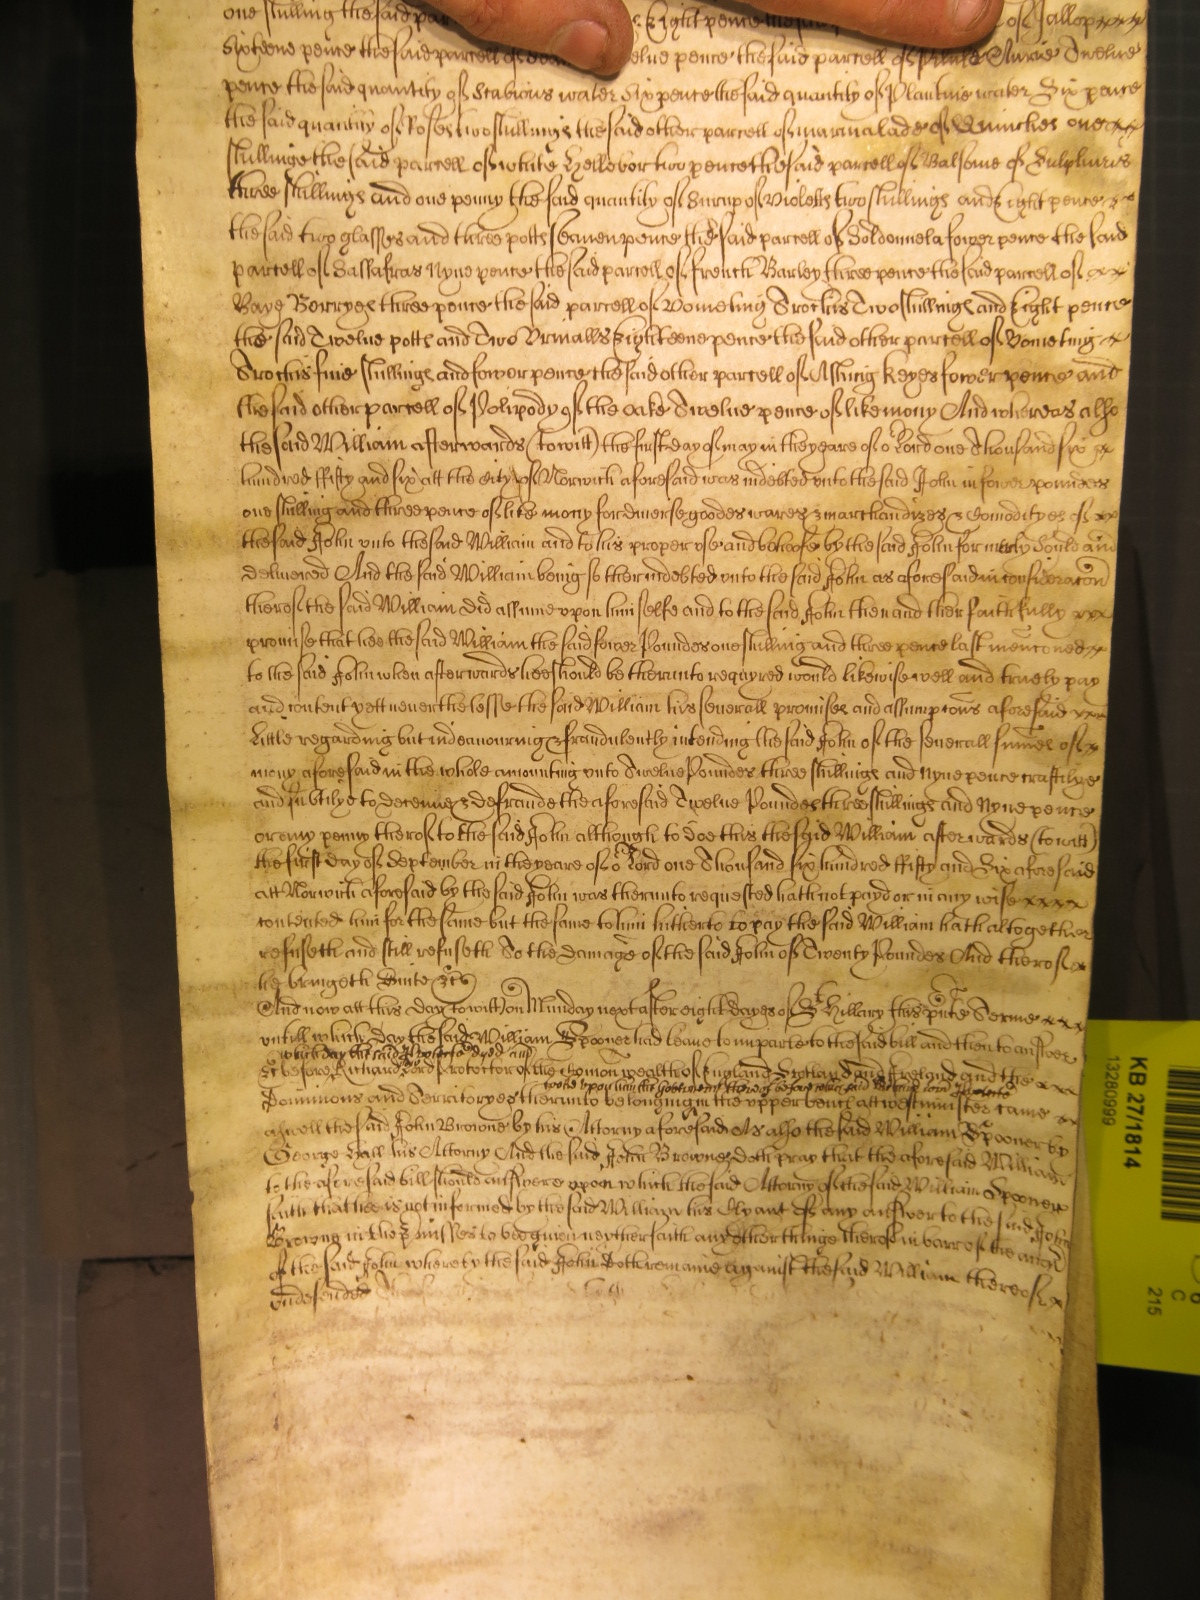 one shilling the said par Eight pence the said of Jallop
Sixteene pence the said parcell of elue pence the said parcell of Pilule Aurie Twelue
pence the said quantity of Scabious water Six pence the said quantity of Plantine water Six pence
the said quantity of Roses two shillings the said other parcell of marmalade of Quinches one
shillinge the said parcell of white Hellebor two pence the said parcell of Balsome of Sulphuris
three shillings and one penny the said quantity of Surup of Violetts two shillings and Eight pence
the said two glasses and three potts seauen pence the said parcell of Soldonnela fower pence the said
parcell of Sassafras Nyne pence the said parcell of French Barley three pence the said parcell of
Baye Berryes three pence the said parcell of Vometing Trochis Two shillings and Eight pence
the said Twelue potts and Two Vrinalls Eighteene pence the said other parcell of Vometing
Trochis fiue shillings and fower pence the said other parcell of Ashing Keyes fower pence and
the said other parcell of Polipody of the oake Twelue pence of like mony And whereas also
the said William afterwards (to witt) the first day of may in the yeare of or Lord one Thousand six
hundred ffifty and six att the City of Norwich aforesaid was indebted vnto the said John in fower pounds
one shilling and three pence of like mony for diuerse goodes wares & marchandizes & Comodityes of
the said John vnto the said William and to his proper vse and behoofe by the said John formerly sould and
deliuered And the said William being so then indebted vnto the said John as aforesaid in consideracon
thereof the said William did assume vpon him selfe and to the said John then and there faithfully
promise that hee the said William the said fower Poundes one shilling and three pence last menconed
to the said John when afterwards hee should be therunto requyred would likewise well and truely pay
and content yett neuerthelesse the said William his seuerall promises and assumpcons aforesaid
little regarding but indeauouring & fraudulently intending the said John of the seuerall summes of
mony aforesaid in the whole amounting vnto Twelue Poundes three shillings and Nyne pence craftilye
and subtilye to deceiue & defraude the aforesaid Twelue Poundes three shillings and Nyne pence
or any penny therof to the said John although to doe this the said William afterwards (to witt)
the first day of September in the yeare of or Lord one Thousand six hundred ffifty and Six aforesaid
att Norwich aforesaid by the said John was therunto requested hath not payd or in any wise
contented him for the same but the same to him hitherto to pay the said William hath altogether
refuseth and still refuseth To the damage of the said John of Twenty Poundes And therof
he bringeth Suite &c
And now att this day to witt on Munday next after eight dayes of St Hillary this pnte Terme
vntill which day the said William Spooner had leaue to imparle to the said bill and then to answer
which day the said dyed and
&c before Richard Lord Protector of the Comon wealth of England Scotland and Ireland and the
tooke vpon him the Goverment therof before
Dominions and Territoryes therunto belonging in the vpper bench att westminster came
aswell the said John Browne by his Attorny aforesaid As also the said William Spooner by
George Hall his Attorny And the said John Browne doth pray that the aforesaid William
to the aforesaid bill should answere vpon which the said Attorny of the said William Spooner
saith that hee is not informed by the said William his Clyant of any answer to the said John
Browne in the pmisses to bee giuen neyther saith any other thinge therof in barr of the accon
of the said John whereby the said John doth remaine against the said William thereof
vndefended
KB 27/1814
13280999
C
215